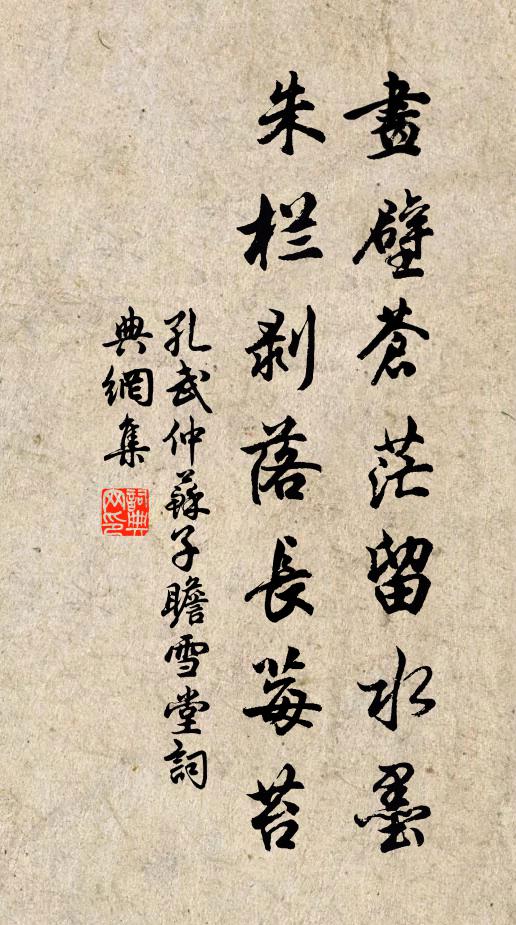 畫壁蒼茫留水墨
朱栏剥落長莓苔
孔武仲蘇子瞻雪堂詞
典網集
詞典網印